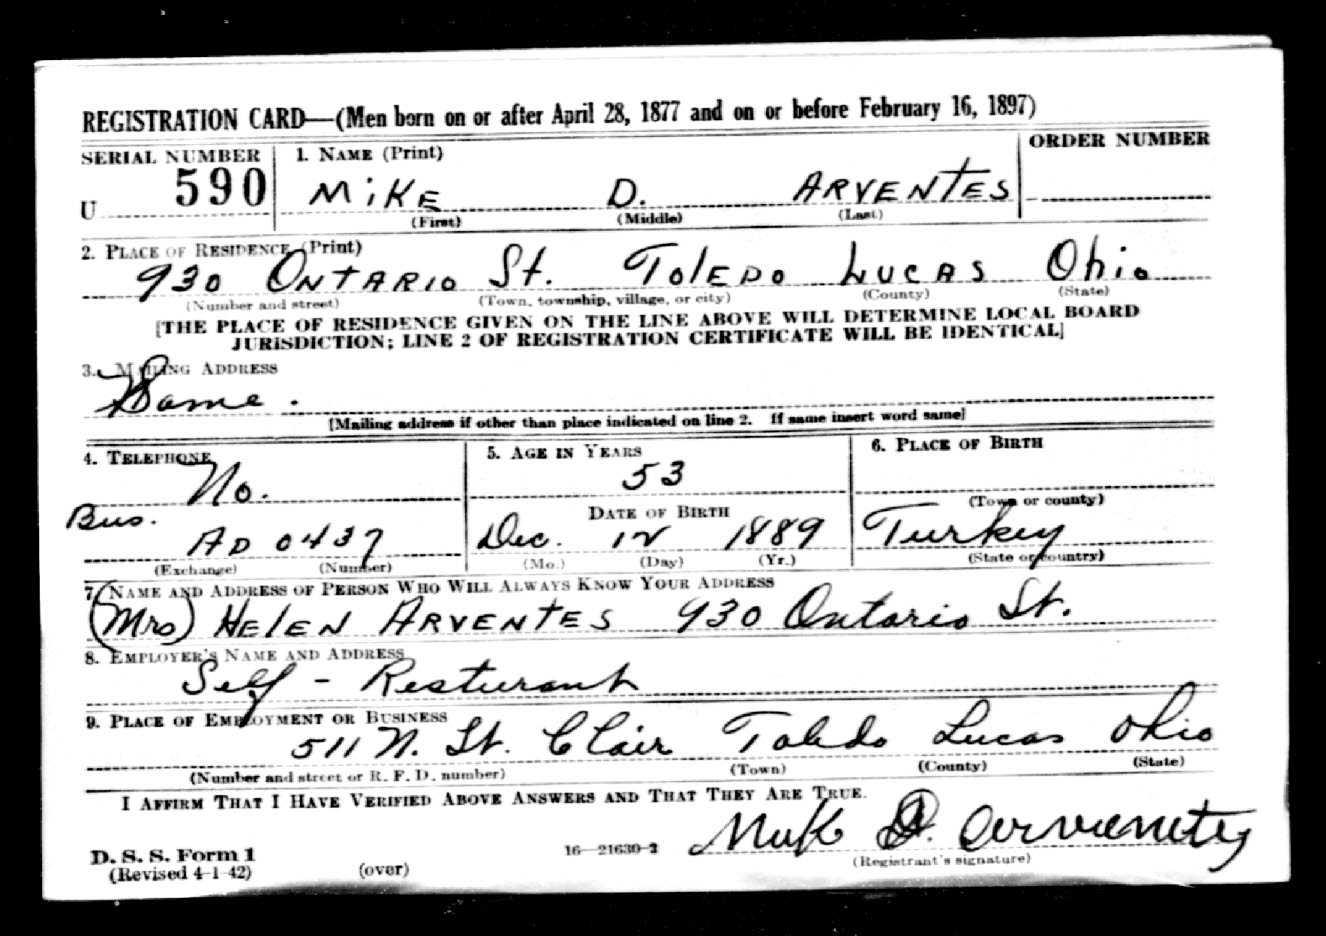 REGISTRATION CARD—(Men born on or after April 28, 1877 and on or before February 16, 1897)
SERIAL NUMBER 1. NAME (Print) ORDER NUMBER
U 590 MiKE D. ARVENTES
(First) (Middle) (Last)
2. PLACE OF RESIDENCE (Print)
930 ONTARIO St. TOLEDO LUCAS Ohio
(Number and street) (Town, township, village, or city) (County) (State)
[THE PLACE OF RESIDENCE GIVEN ON THE LINE ABOVE WILL DETERMINE LOCAL BOARD
JURISDICTION; LINE 2 OF REGISTRATION CERTIFICATE WILL BE IDENTICAL]
3. MAILING ADDRESS
Same.
[Mailing address if other than place indicated on line 2. If same insert word same]
4. TELEPHONE 5. AGE IN YEARS 6. PLACE OF BIRTH
No. 53
(Town or county)
Bus. DATE OF BIRTH
AD 0437 Dec. 12 1889 Turkey
(Exchange) (Number) (Mo.) (Day) (Yr.) (State or country)
7. NAME AND ADDRESS OF PERSON WHO WILL ALWAYS KNOW YOUR ADDRESS
(Mrs) HELEN ARVENTES 930 Ontario St.
8. EMPLOYER'S NAME AND ADDRESS
Self - Resturant
9. PLACE OF EMPLOYMENT OR BUSINESS
511 N. St. Clair Toledo Lucas Ohio
(Number and street or R. F. D. number) (Town) (County) (State)
I AFFIRM THAT I HAVE VERIFIED ABOVE ANSWERS AND THAT THEY ARE TRUE.
D. S. S. Form 1 16—21630-2
(Revised 4-1-42) (over) (Registrant's signature)